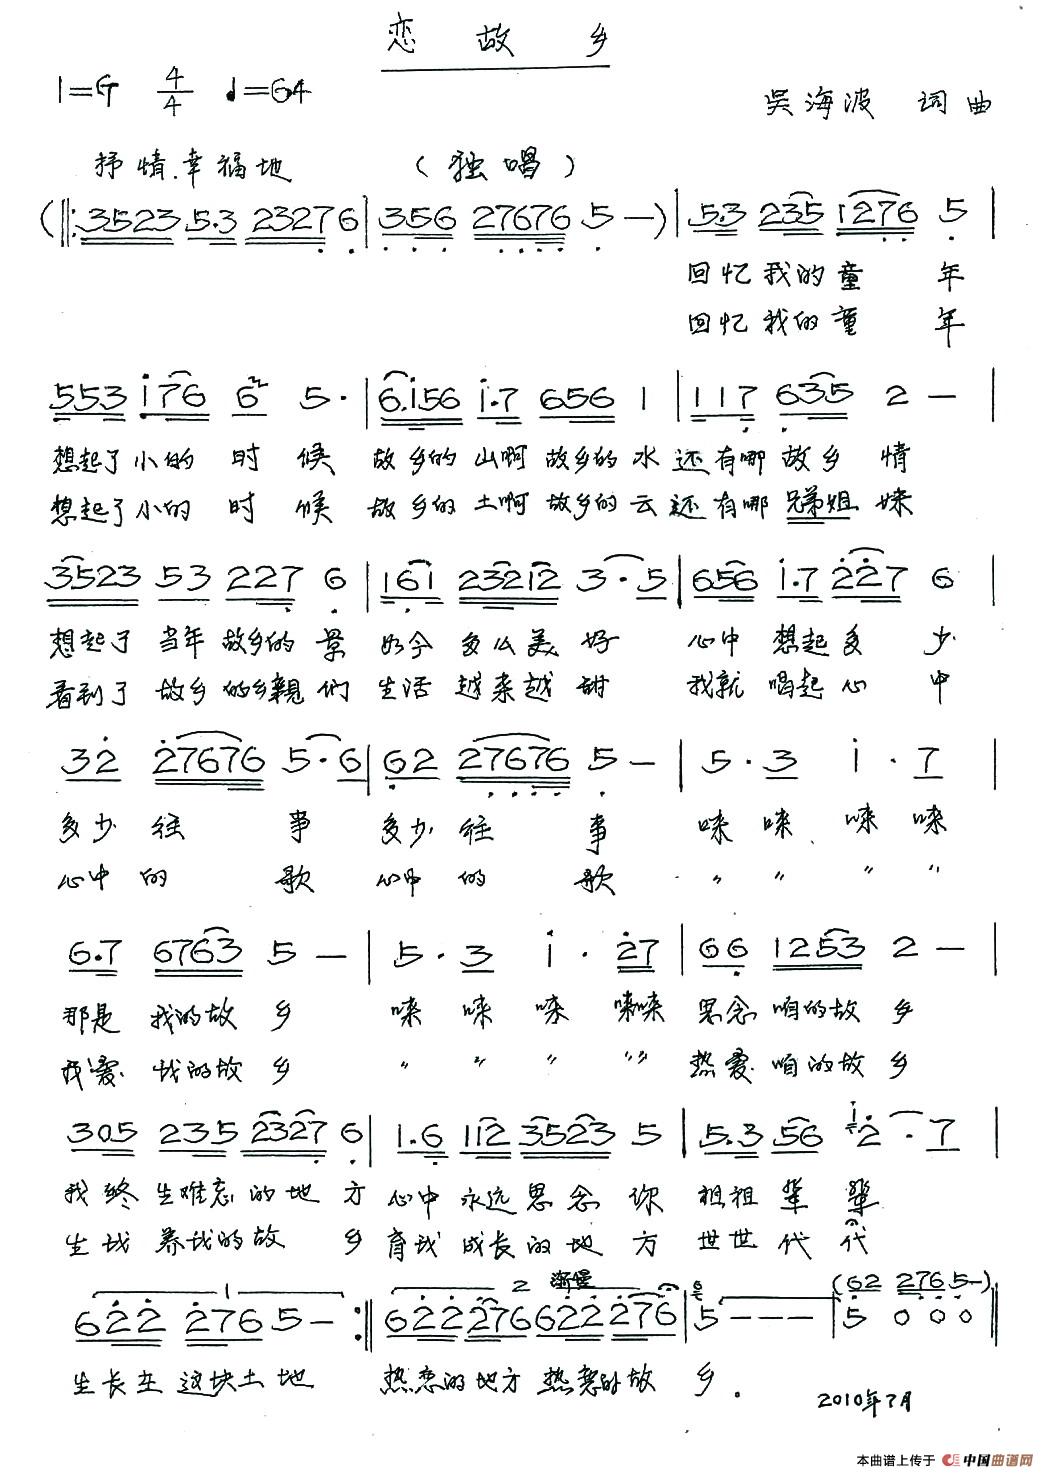 恋故乡
1=G 4/4 ♩=64
吴海波 词曲
抒情.幸福地 (独唱)
(‖: 3523 5.3 2327 6 | 356 27676 5 — ) | 5.3 235 1276 5 |
回忆我的童年
回忆我的童年
553 176 6 5· | 6.156 1.7 656 1 | 117 635 2 — |
想起了小的时候 故乡的山啊故乡的水还有哪故乡情
想起了小的时候 故乡的土啊故乡的云还有哪兄弟姐妹
3523 53 227 6 | 161 23212 3·5 | 656 1.7 227 6
想起了当年故乡的景 如今多么美好 心中想起多少
看到了故乡的乡親们 生活越来越甜 我就唱起心中
32 27676 5·6 | 62 27676 5 — | 5·3 1·7 |
多少往事 多少往事 唻唻唻唻
心中的歌 心中的歌 〃〃〃〃
6.7 6763 5 — | 5·3 1·27 | 66 1253 2 — |
那是我的故乡 唻唻唻唻唻 思念咱的故乡
我爱我的故乡 〃〃〃〃〃 热爱咱的故乡
305 235 2327 6 | 1.6 112 3523 5 | 5.3 56 2·7 |
我终生难忘的地方 心中永远思念你 祖祖辈辈
生我养我的故乡 育我成长的地方 世世代代
1 2 渐慢 (62 276 5—)
622 276 5 — :‖ 622 276 622 276 | 5 — — — | 5 0 0 0 ‖
生长在这块土地 热恋的地方 热恋的故乡。
2010年7月
本曲谱上传于 中国曲谱网